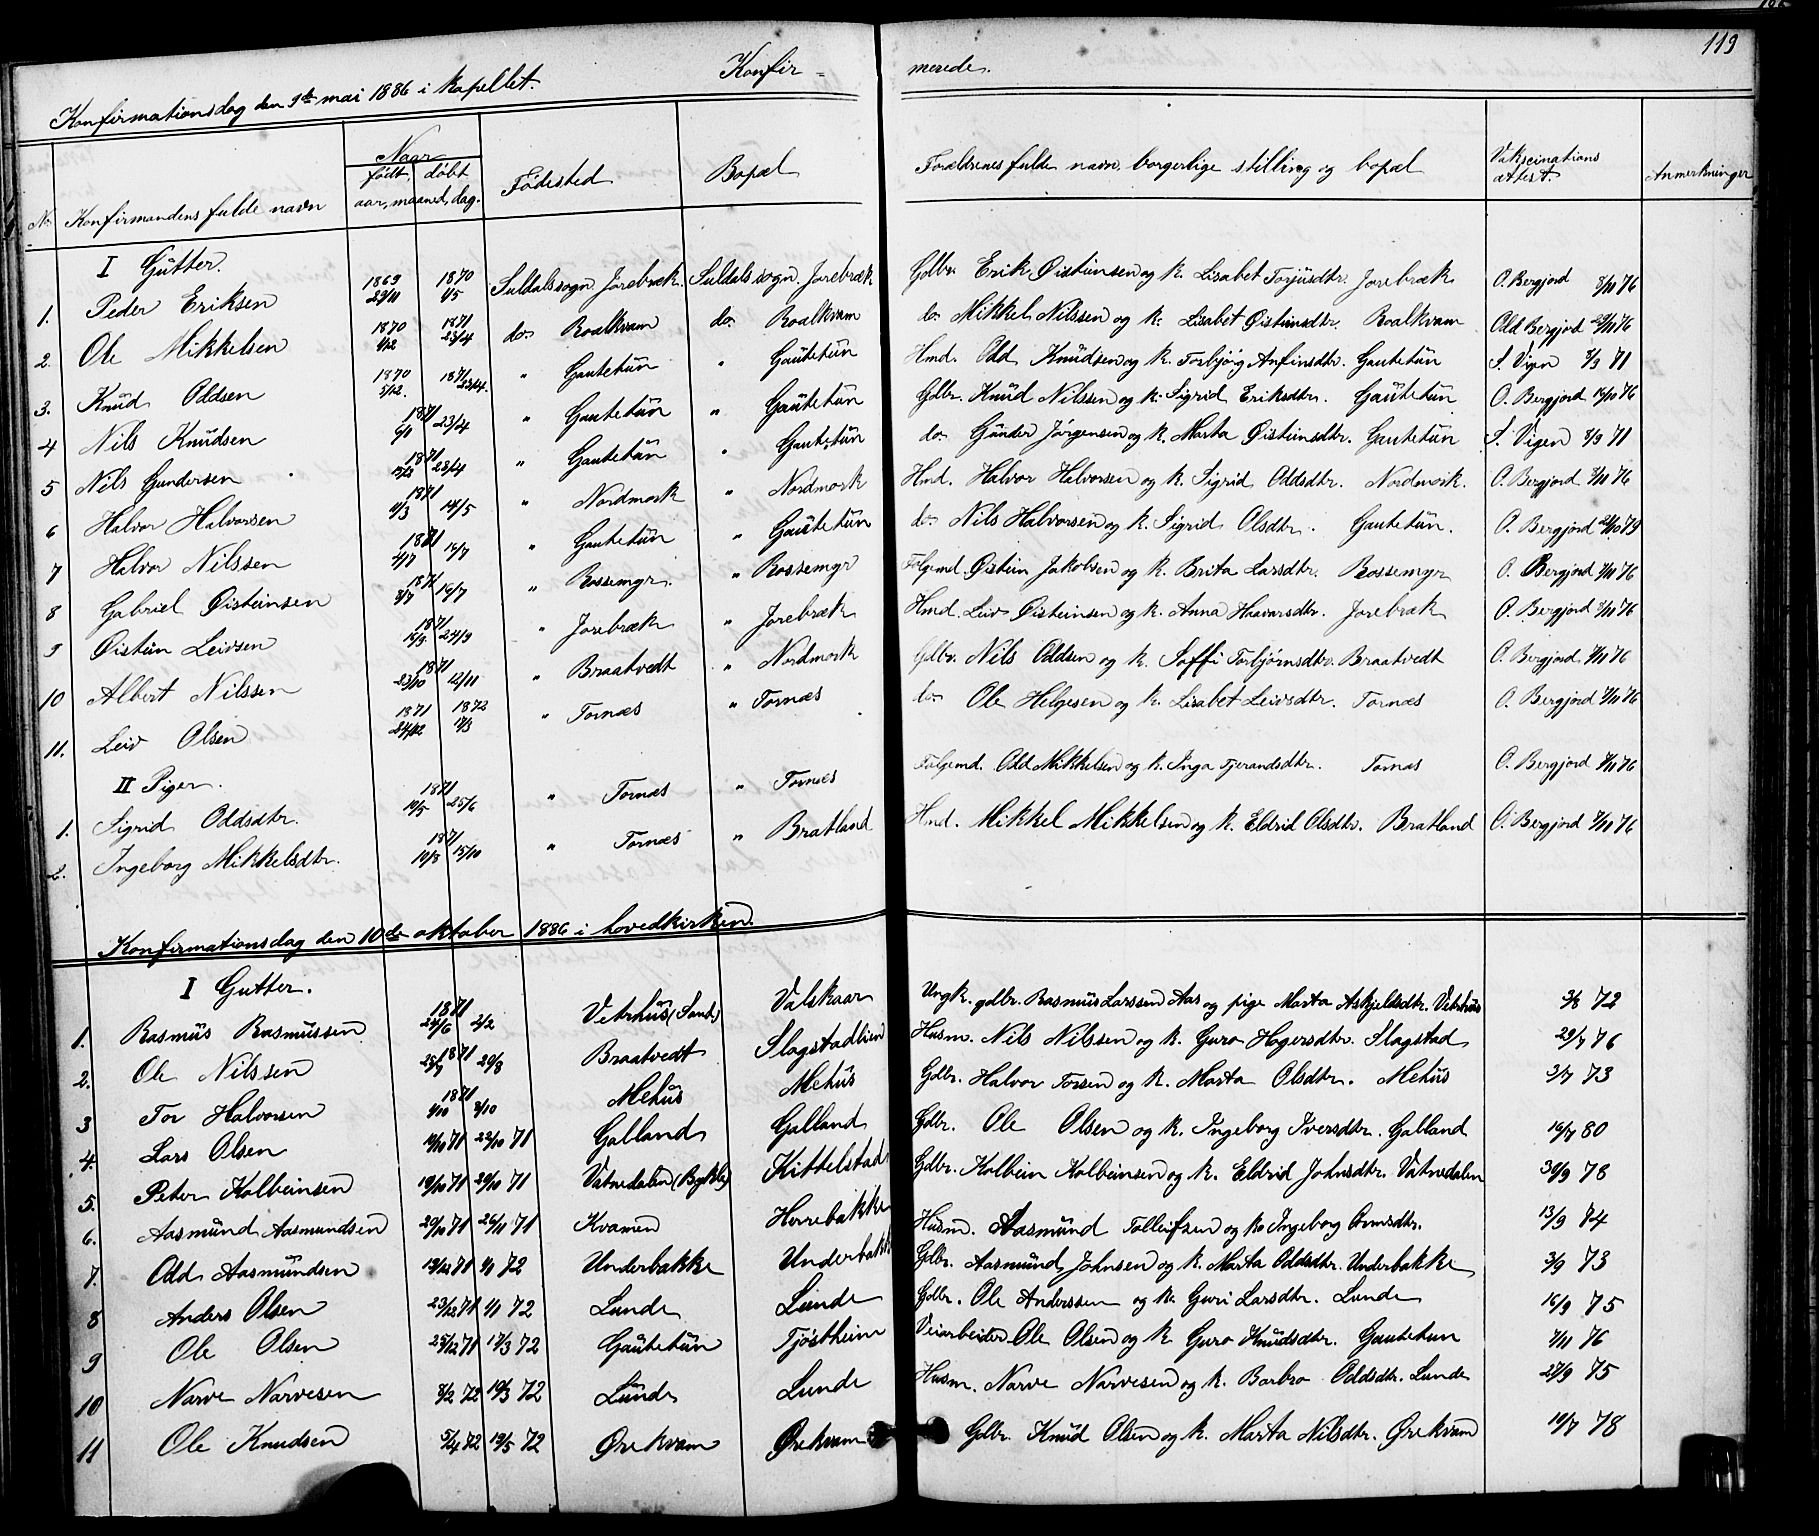 119
Konfir- merede.
Konfirmationsdag den 9de mai 1886 i kapellet.
No. Konfirmandens fulde navn Naar født, døbt aar, maaned, dag. Fødested Bopæl Forældrenes fulde navn, borgerlige stilling og bopæl Vakscinations attest. Anmerkninger
I Gutter.
1. Peder Eriksen 1869 29/11 1870 1/5 Suldals sogn Jorebræk. Suldals sogn Jorebræk Gdbr. Erik Øistensen og k. Lisabet Torjusdtr. Jorebræk O. Bergjord 7/11 76
2. Ole Mikkelsen 1870 1/12 1871 23/4 do. Roalkvam do. Roalkvam do. Mikkel Nilssen og k. Lisabet Øistensdtr. Roalkvam Odd Bergjord 29/11 76
3. Knud Oddsen 1870 5/12. 1871 23/4. " Gautetun " Gautetun Hmd. Odd Knudsen og k. Torbjøg Anfinsdtr. Gautetun S. Vigen 7/9 71
4 Nils Knudsen 1871 6/1 23/4 " Gautetun " Gautetun Gdbr. Knud Nilssen og k. Sigrid Eriksdtr. Gautetun O. Bergjord 14/10 76
5 Nils Gundersen 1871 23/4 " Gautetun " Gautetun do. Gunder Jørgensen og k. Marta Øistensdtr. Gautetun S. Vigen 7/9 71
6 Halvor Halvorsen 1871 11/3 14/5 " Nordmork " Nordmork Hmd. Halvor Halvorsen og k. Sigrid Oddsdtr. Nordmork. O. Bergjord 7/11 76
7 Halvor Nilssen 1871 2/7 16/7 " Gautetun " Gautetun do. Nils Halvorsen og k. Sigrid Olsdtr. Gautetun. O. Bergjord 21/10 79
8 Gabriel Øisteinsen 1871 3/7 16/7 " Rossemyr. " Rossemyr Folgemd. Øistein Jakobsen og k. Brita Larsdtr. Rossemyr O. Bergjord 7/11 76
9 Øistein Leivsen 1871 15/9 24/9 " Jorebræk " Jorebræk Hmd. Leiv Øisteinsen og k. Anna Haavarsdtr. Jorebræk O. Bergjord 7/11 76
10 Albert Nilssen 1871 23/10 12/11 " Braatvedt " Nordmork Gdbr. Nils Oddsen og k. Soffi Torbjørnsdtr. Braatvedt O. Bergjord 7/11 76
11. Leiv Olsen 1871 24/12 1872 17/3 " Tornæs " Tornæs do. Ole Helgesen og k. Lisabet Leivsdtr. Tornæs O. Bergjord 7/11 76
II Piger.
1. Sigrid Oddsdtr. 1871 19/5 25/6 " Tornæs " Tornæs Folgemd. Odd Mikkelsen og k. Inga Tjerandsdtr. Tornæs O. Bergjord 7/11 76
2. Ingeborg Mikkelsdtr. 1871 19/8 15/10 " Tornæs " Bratland Hmd. Mikkel Mikkelsen og k. Eldrid Olsdtr. Bratland O. Bergjord 7/11 76
Konfirmationsdag den 10de oktober 1886 i hovedkirken.
I Gutter.
1. Rasmus Rasmussen 1871 24/6 2/2 Vetrhus (Sand) Valskaar Ungk. gdbr. Rasmus Larssen Aas og pige Marta Askjelsdtr. Vetrhus 3/8 72
2. Ole Nilssen 1871 25/7 20/8 Braatvedt Slagstadlien Husm. Nils Nilssen og k. Guro Hogersdtr. Slagstad 29/7 76
3 Tor Halvorsen 1871 1/10 8/10 Mehus Mehus Gdbr. Halvor Torsen og k. Marta Olsdtr. Mehus 3/7 73
4. Lars Olsen 14/10 71 22/10 71 Galland Galland Gdbr. Ole Olsen og k. Ingeborg Iversdtr. Galland 16/7 80
5. Peter Kolbeinsen 19/10 71 29/10 71 Vatnedalen (Bykle) Kittelstad Gdbr. Kolbein Kolbeinsen og k. Eldrid Johnsdtr. Vatnedalen 30/9 78
6. Aasmund Aasmundsen 20/10 71 26/11 71 Kvamen Horrebakke Husm. Aasmund Tolleifsen og k. Ingeborg Ormsdtr. 13/9 74
7. Odd Aasmundsen 19/12 71 1/1 72 Underbakke Underbakke Gdbr. Aasmund Johnsen og k. Marta Oddsdtr. Underbakke 3/9 73
8 Anders Olsen 23/12 71 1/1 72 Lunde Lunde Gdbr. Ole Anderssen og k. Guri Larsdtr. Lunde 16/9 75
9 Ole Olsen 25/12 71 17/3 72 Gautetun Tjøstheim Veiarbeider Ole Olsen og k. Guro Knudsdtr. Gautetun 7/11 76
10 Narve Narvesen 3/2 72 10/3 72 Lunde Lunde Husm. Narve Narvesen og k. Barbro Oddsdtr. Lunde 27/9 75
11 Ole Knudsen 5/4 72 19/5 72 Ørekvam Ørekvam Gdbr. Knud Olsen og k. Marta Nilsdtr. Ørekvam 10/7 78